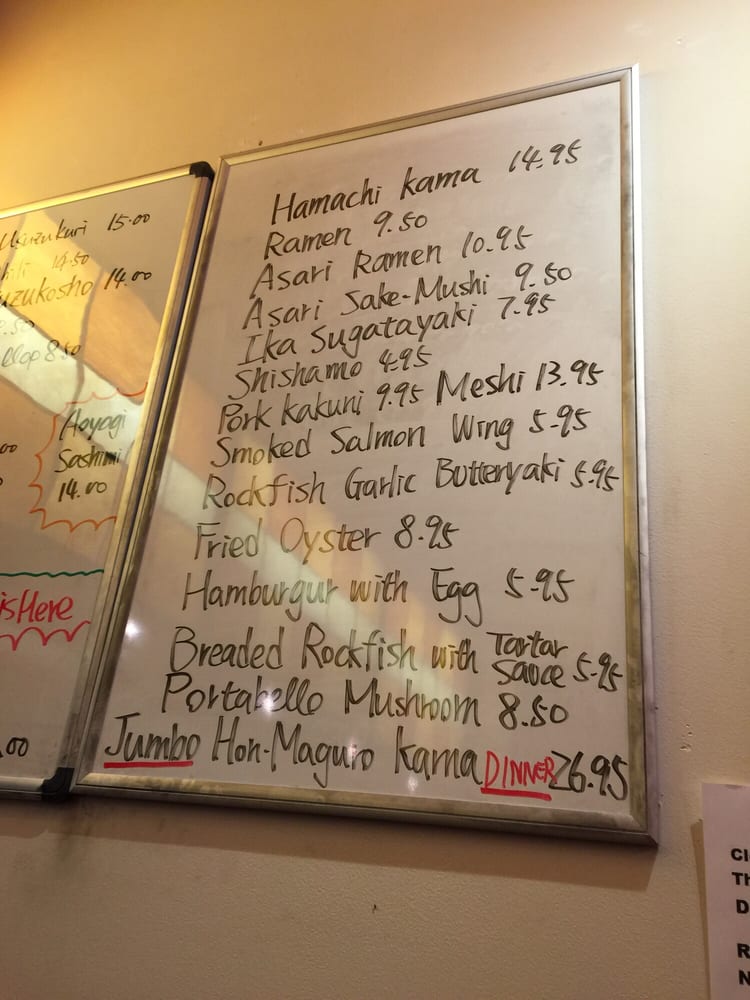 Usuzukuri 15.00
14.50
uzukosho 14.00
.50
llop 8.50
Aoyagi
Sashimi
14.00
is Here
.00
Hamachi kama 14.95
Ramen 9.50
Asari Ramen 10.95
Asari Sake-Mushi 9.50
Ika Sugatayaki 7.95
Shishamo 4.95
Pork Kakuni 9.95 Meshi 13.95
Smoked Salmon Wing 5.95
Rockfish Garlic Butteryaki 5.95
Fried Oyster 8.95
Hamburgur with Egg 5.95
Breaded Rockfish with Tartar Sauce 5.95
Portabello Mushroom 8.50
Jumbo Hon-Maguro kama DINNER 26.95
Cl
Th
D
R
N